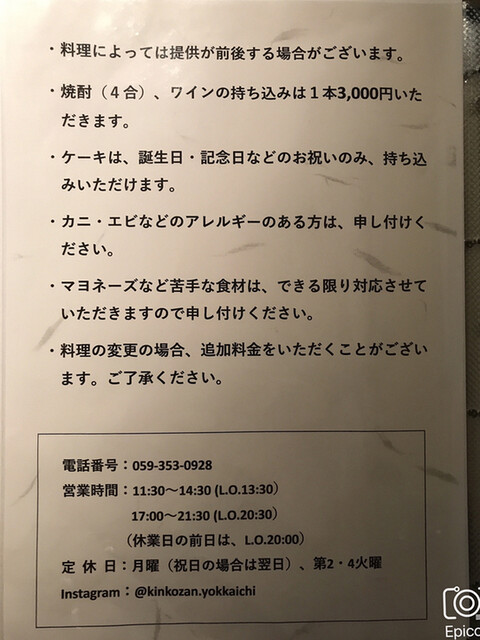 ・料理によっては提供が前後する場合がございます。
・焼酎（４合）、ワインの持ち込みは１本3,000円いた
だきます。
・ケーキは、誕生日・記念日などのお祝いのみ、持ち込
みいただけます。
・カニ・エビなどのアレルギーのある方は、申し付けく
ださい。
・マヨネーズなど苦手な食材は、できる限り対応させて
いただきますので申し付けください。
・料理の変更の場合、追加料金をいただくことがござい
ます。ご了承ください。
電話番号：059-353-0928
営業時間：11:30～14:30 (L.O.13:30）
17:00～21:30 (L.O.20:30）
（休業日の前日は、L.O.20:00）
定 休 日：月曜（祝日の場合は翌日）、第2・4火曜
Instagram：@kinkozan.yokkaichi
Epic